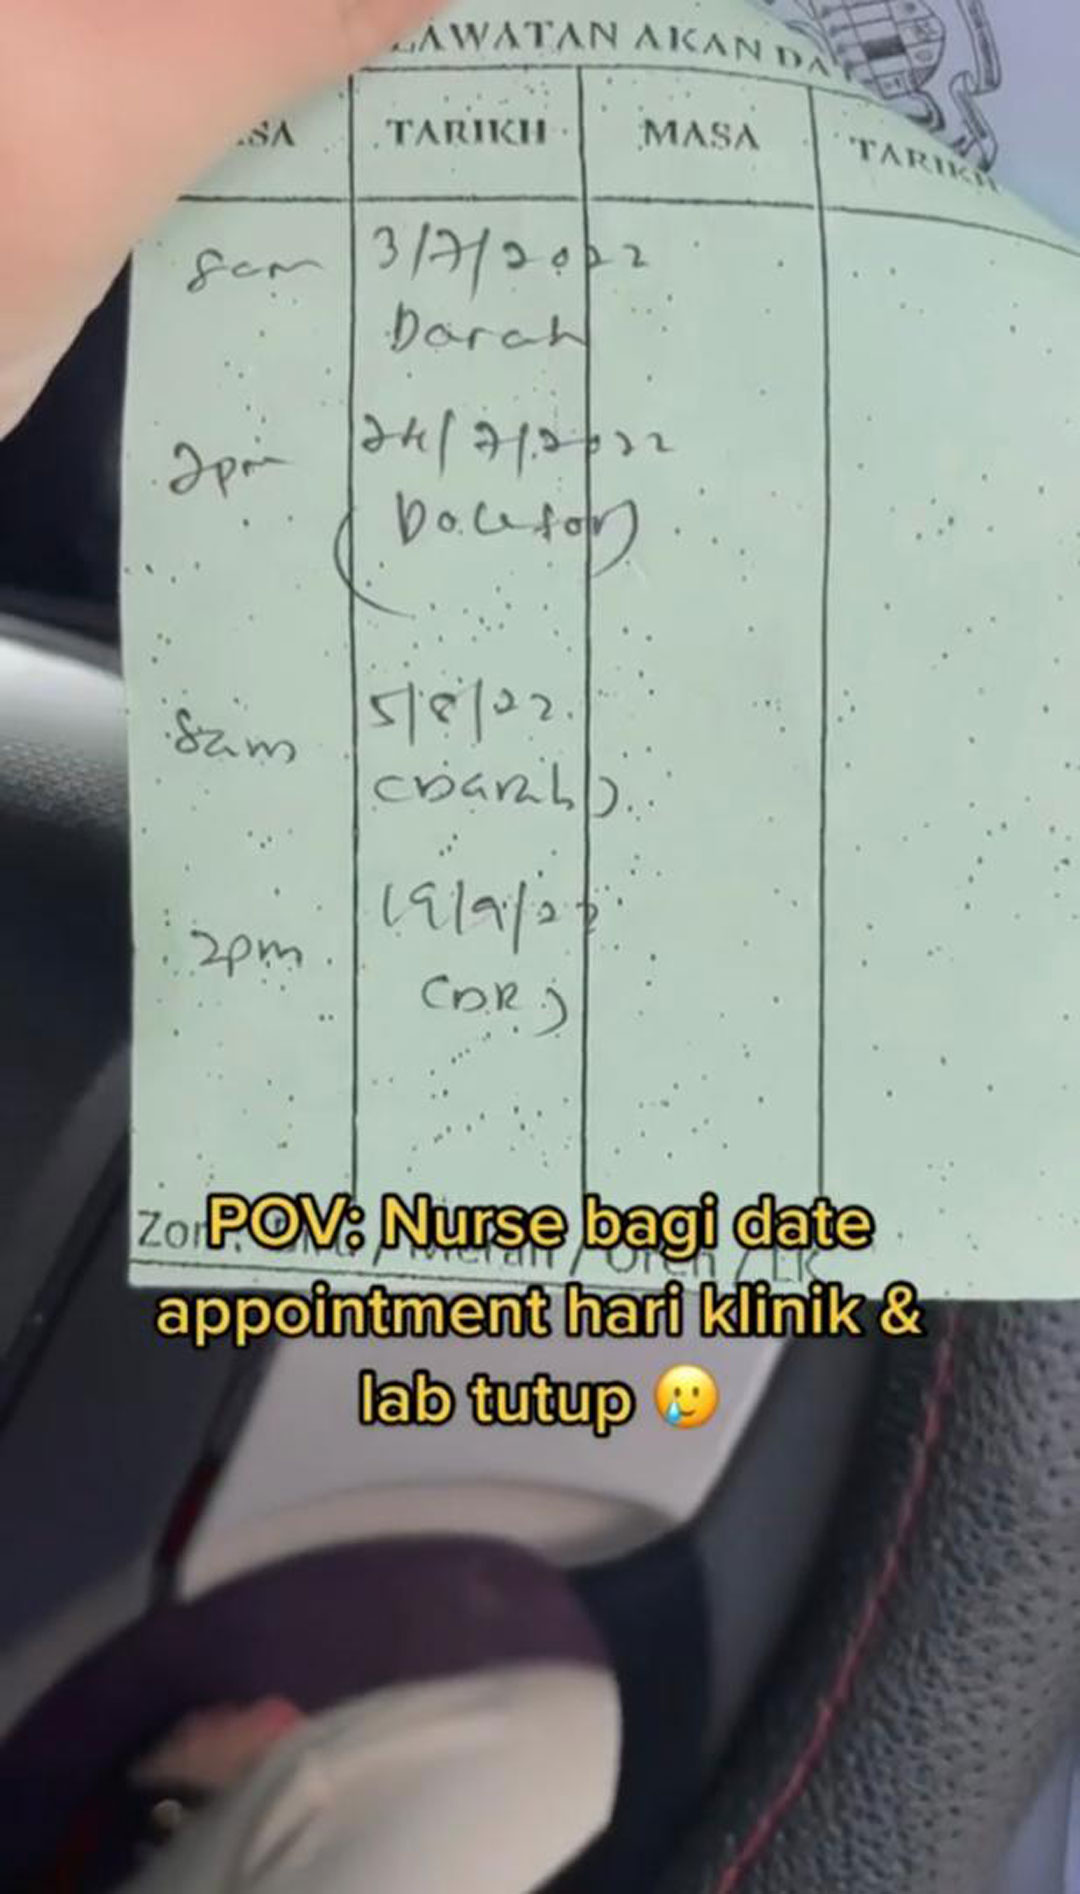 LAWATAN AKAN DA
SA TARIKH MASA TARIKH
8am 3/7/2022
Darah
2pm 24/7/2022
(Doctor)
8am 5/8/22
(Darah)
2pm 19/9/22
(DR)
POV: Nurse bagi date
appointment hari klinik &
lab tutup 🥲